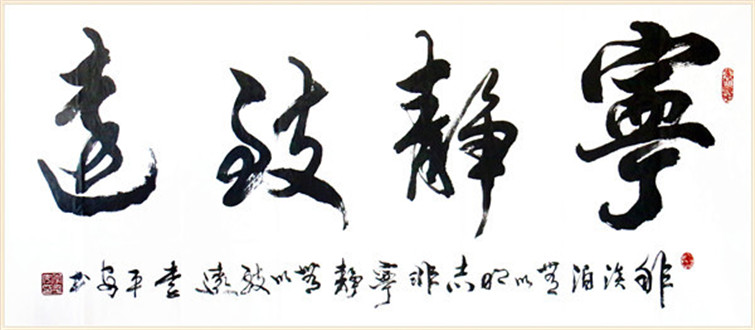 寧靜致遠
非淡泊無以明志非寧靜無以致遠李平安书